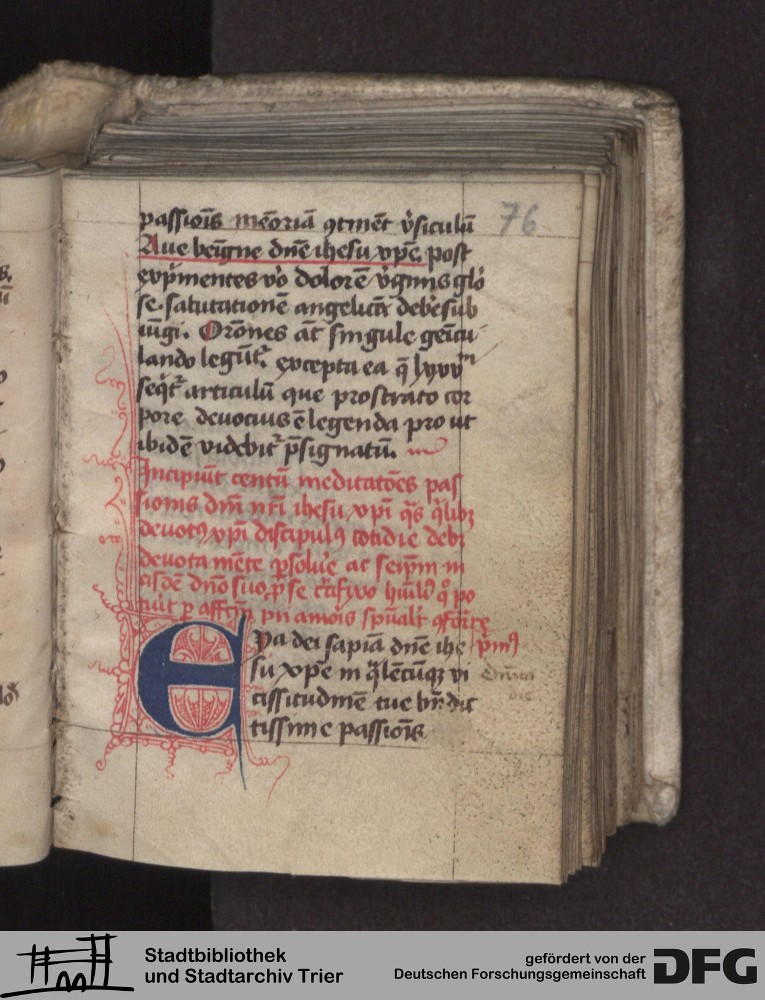 76
passiōis mēoriā ꝯtinēt v̓siculū
Aue benigne dn̄e ihesu xp̄e. post
exp̓mentes v̓o dolorē v̓ginis glo
se. salutationē angelicā debēt sub
iūgi. Orōnes āt singule genicu
lando legūt᷑. excepta ea q̄ lxxvᵐ
seqt᷑ articulū que prostrato cor
pore deuocius ē legenda pro ut
ibidē videbit᷑ p̄signatū.
Incipiūt centū meditatōes pas
sionis dn̄i nr̄i ihesu xp̄i q̄s q̄libꝫ
deuotꝰ xp̄i discipulꝰ cotidie debꝫ
deuota mēte ꝑsolu̓e ac seip̄m in
eisdē dn̄o suo
Eya dei sapiā dn̄e ihe
su xp̄e in q̄lēcūqꝫ vi
cissitudinē tue bn̄dic
tissime passiōis
Stadtbibliothek
und Stadtarchiv Trier
gefördert von der
Deutschen Forschungsgemeinschaft
DFG